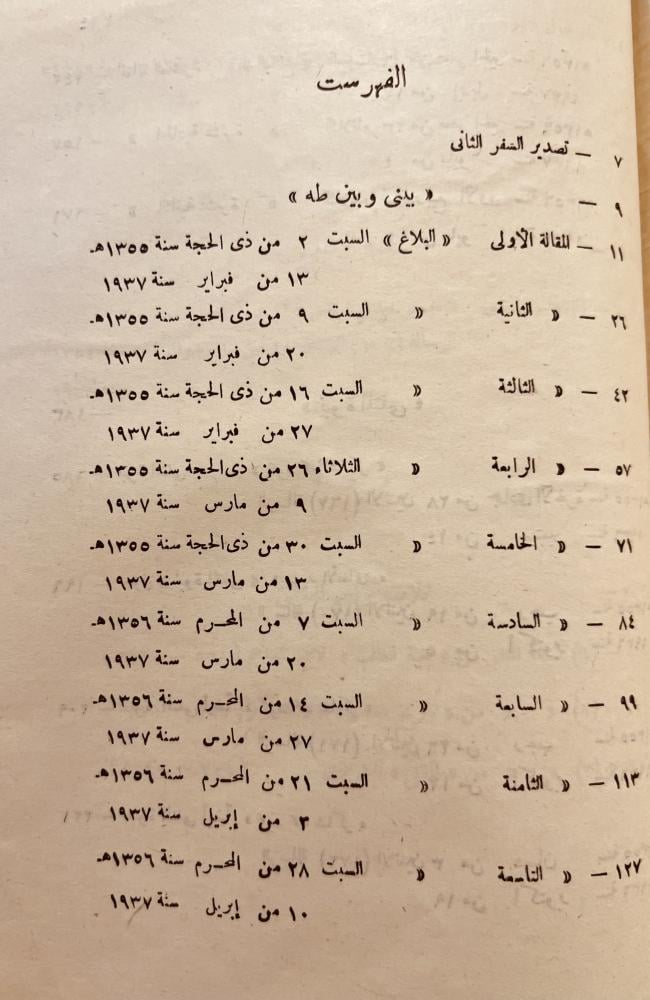 الفهرست
٧ — تصدير السفر الثانى
٩ — « بينى وبين طه »
١١ — المقالة الأولى « البلاغ » السبت ٢ من ذى الحجة سنة ١٣٥٥هـ
١٣ من فبراير سنة ١٩٣٧
٢٦ — » الثانية » السبت ٩ من ذى الحجة سنة ١٣٥٥هـ
٢٠ من فبراير سنة ١٩٣٧
٤٢ — » الثالثة » السبت ١٦ من ذى الحجة سنة ١٣٥٥هـ
٢٧ من فبراير سنة ١٩٣٧
٥٧ — » الرابعة » الثلاثاء ٢٦ من ذى الحجة سنة ١٣٥٥هـ
٩ من مارس سنة ١٩٣٧
٧١ — » الخامسة » السبت ٣٠ من ذى الحجة سنة ١٣٥٥هـ
١٣ من مارس سنة ١٩٣٧
٨٤ — » السادسة » السبت ٧ من المحرم سنة ١٣٥٦هـ
٢٠ من مارس سنة ١٩٣٧
٩٩ — » السابعة » السبت ١٤ من المحرم سنة ١٣٥٦هـ
٢٧ من مارس سنة ١٩٣٧
١١٣ — » الثامنة » السبت ٢١ من المحرم سنة ١٣٥٦هـ
٣ من إبريل سنة ١٩٣٧
١٢٧ — » التاسعة » السبت ٢٨ من المحرم سنة ١٣٥٦هـ
١٠ من إبريل سنة ١٩٣٧